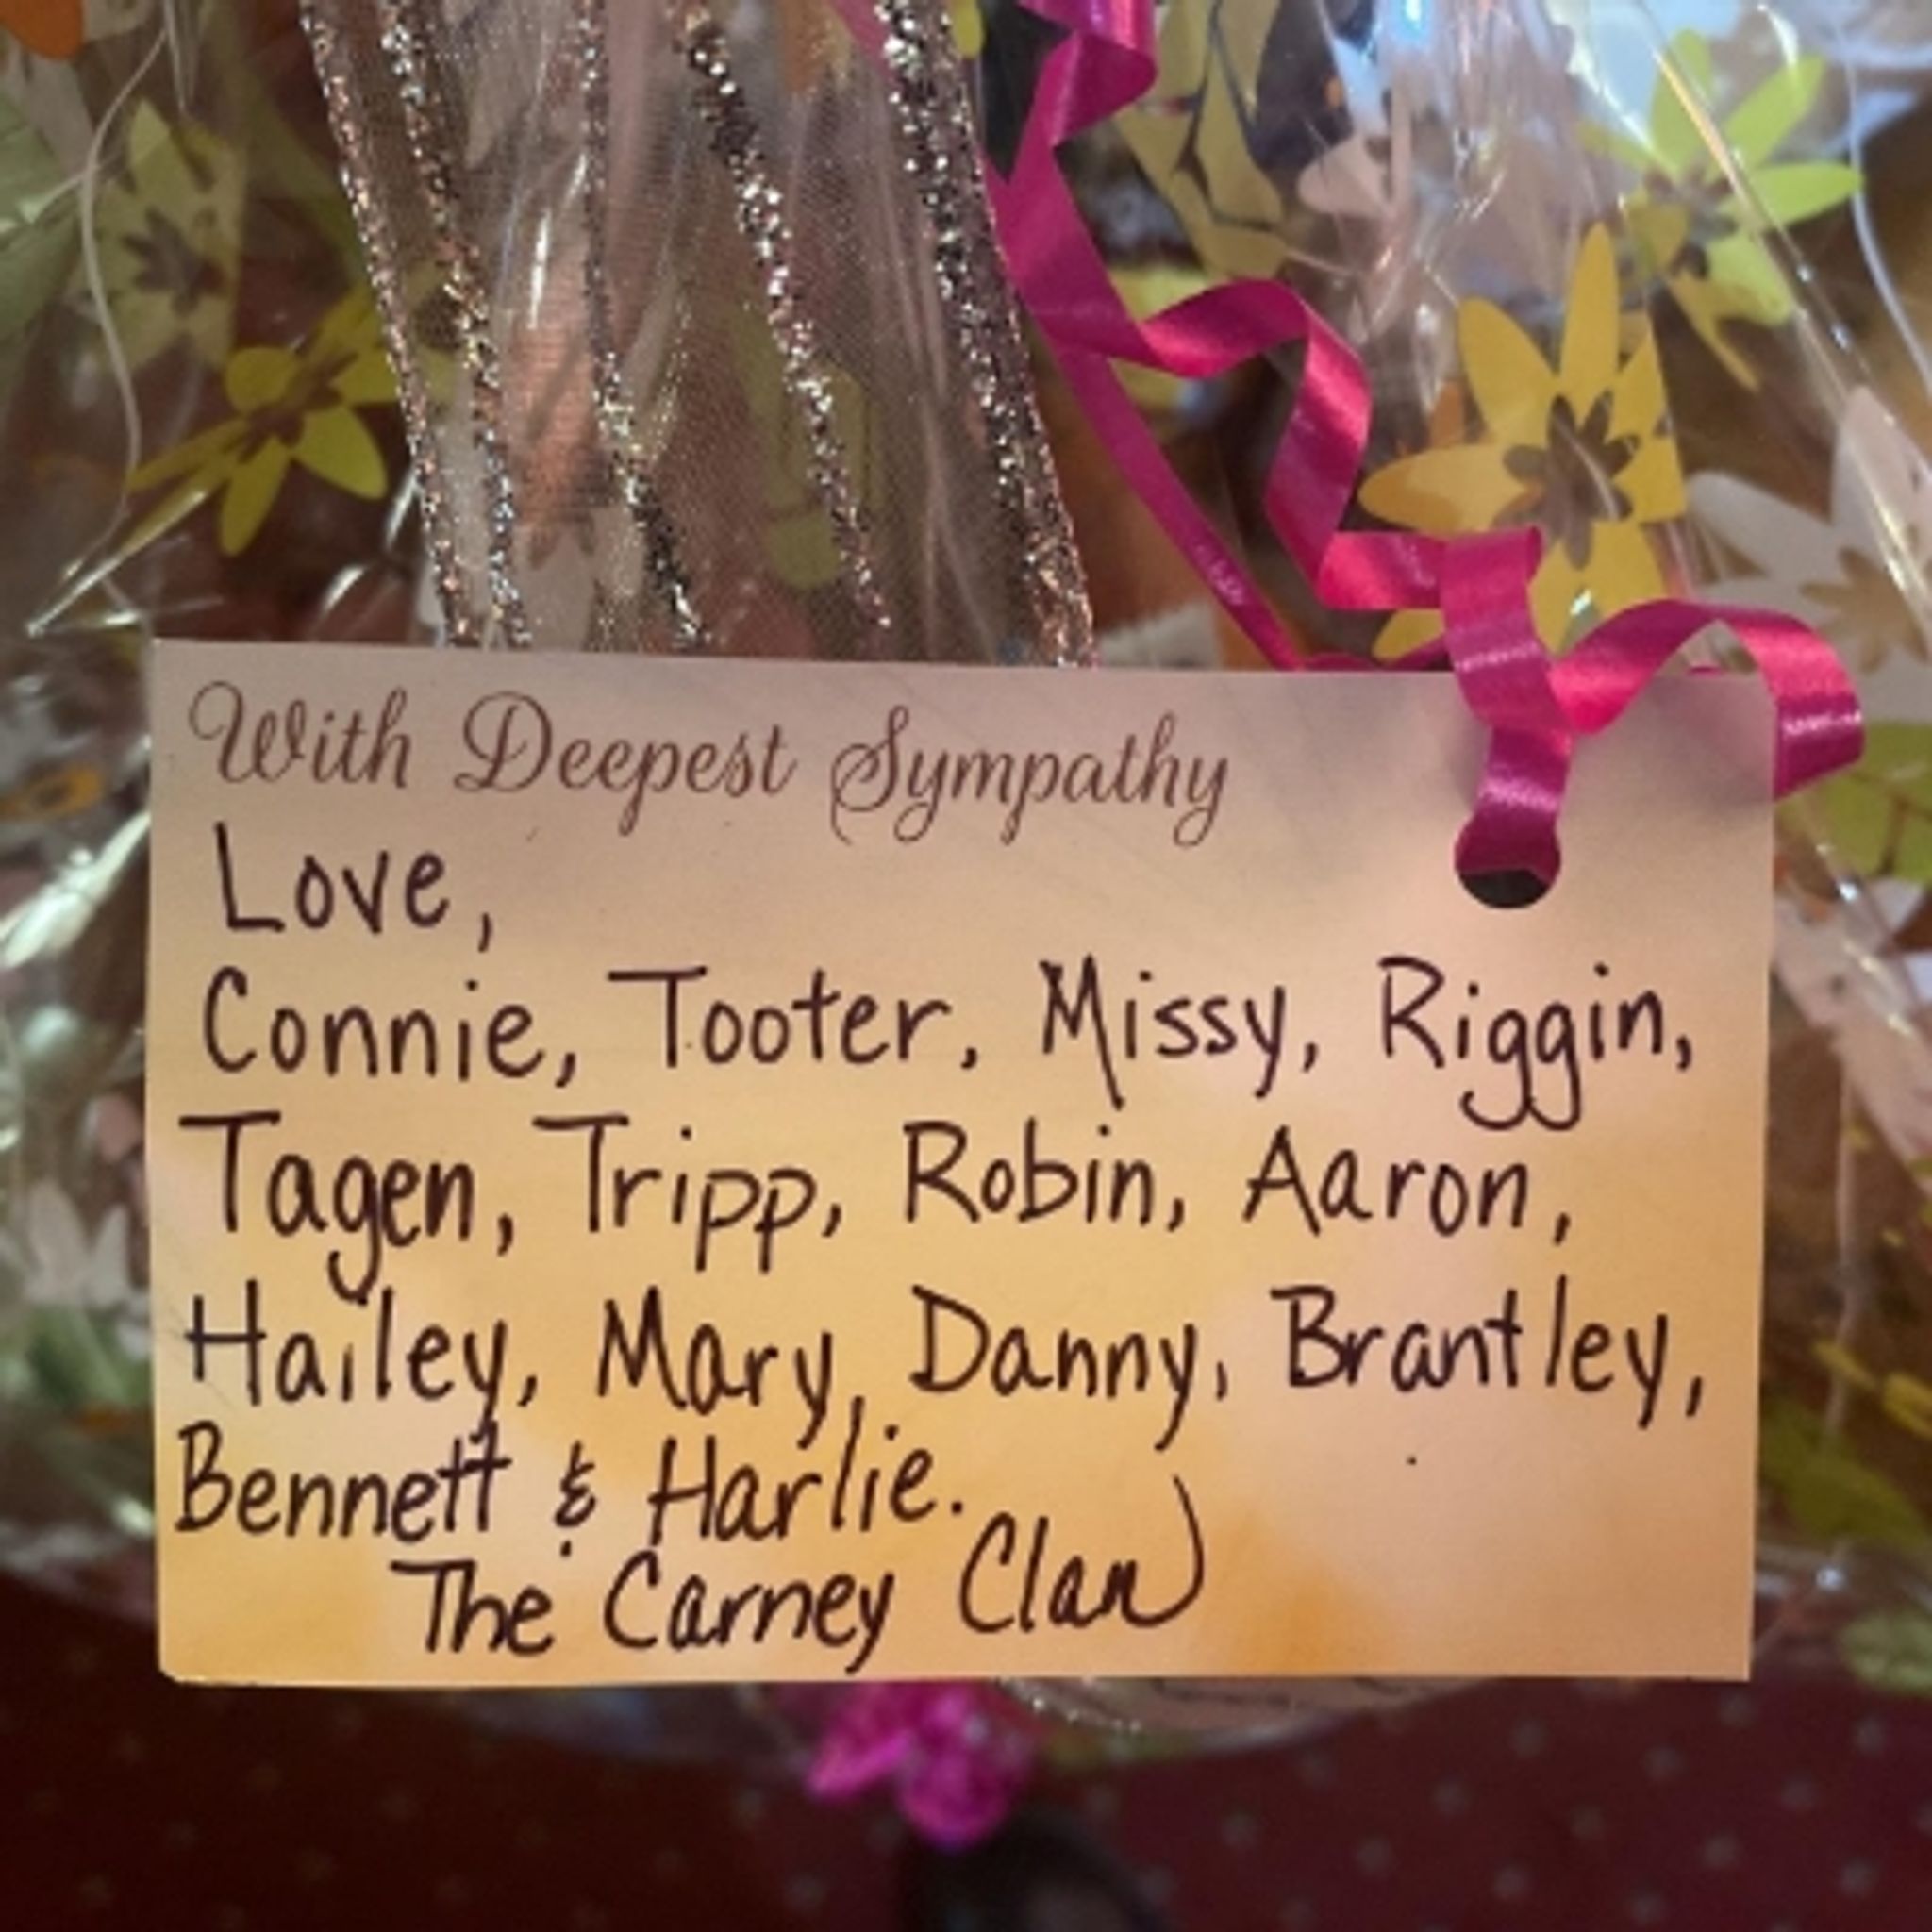 With Deepest Sympathy
Love,
Connie, Tooter, Missy, Riggin,
Tagen, Tripp, Robin, Aaron,
Hailey, Mary, Danny, Brantley,
Bennett & Harlie.
The Carney Clan